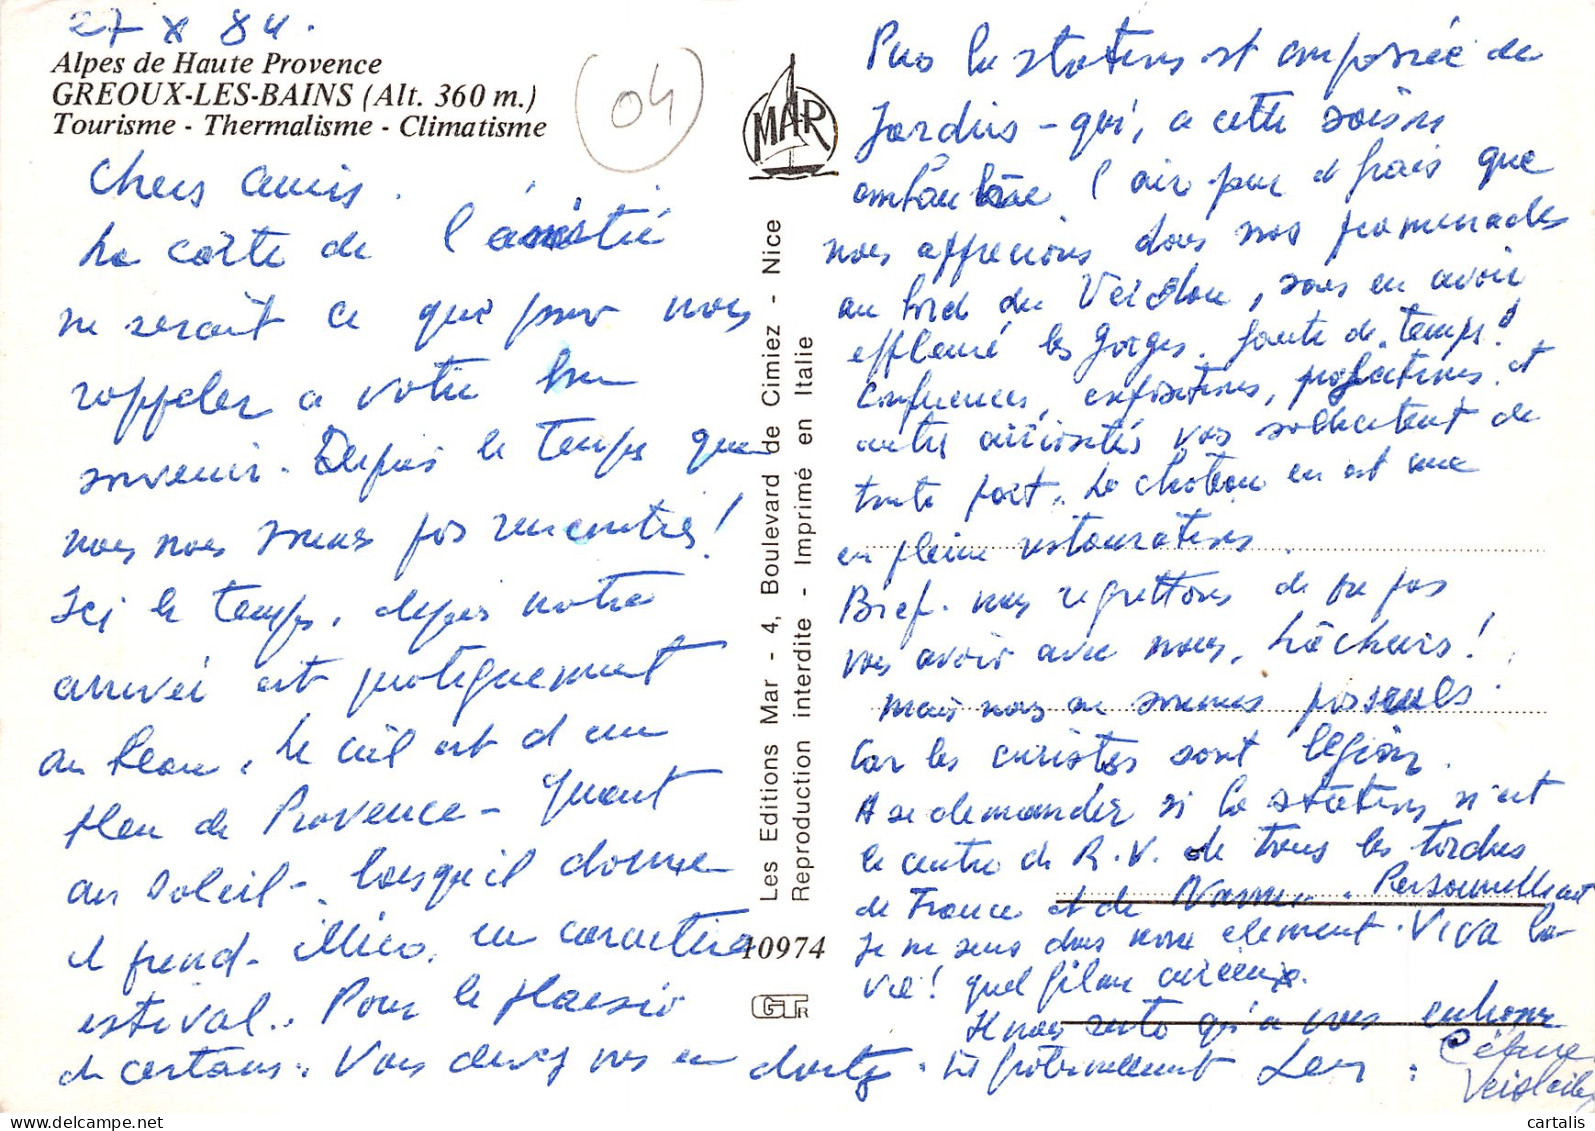 27 X 84.
Alpes de Haute Provence
GREOUX-LES-BAINS (Alt. 360 m.)
Tourisme - Thermalisme - Climatisme
04
Chers amis.
La carte de l'amitié
ne serait ce que pour nous
rappeler a votre bon
souvenir. Depuis le temps que
nous nous sommes pas rencontrés!
Ici le temps, depuis notre
arrivée est pratiquement
au beau. Le ciel est d'un
bleu de Provence - quant
au soleil -, lorsqu'il donne
il prend - illico, un caractère
estival.. Pour le plaisir
de certains. Vous devez vous en doutez.
MAR
Les Editions Mar - 4, Boulevard de Cimiez - Nice
Reproduction interdite - Imprimé en Italie
10974
GTR
Puis la station est composée de
Jardins - qui, a cette saison
embaume l'air pur et frais que
nous apprecions dans nos promenades
au bord du Verdon, sans en avoir
effleuré les Gorges. faute de temps!
Conferences, expositions, projections et
autres curiosités vous sollicitent de
toute part. Le château en est une
en pleine restauration.
Bref. nous regrettons de ne pas
vous avoir avec nous. Lâcheurs!
mais nous ne sommes pas seuls.
Car les curistes sont légion.
A se demander si la station n'est
le centre de R.V. de tous les tordus
de France et de Navarre. Personnellement
je me sens dans mon element. Viva la
vie! quel filon curieux.
Il nous reste qu'a vous
fraternellement